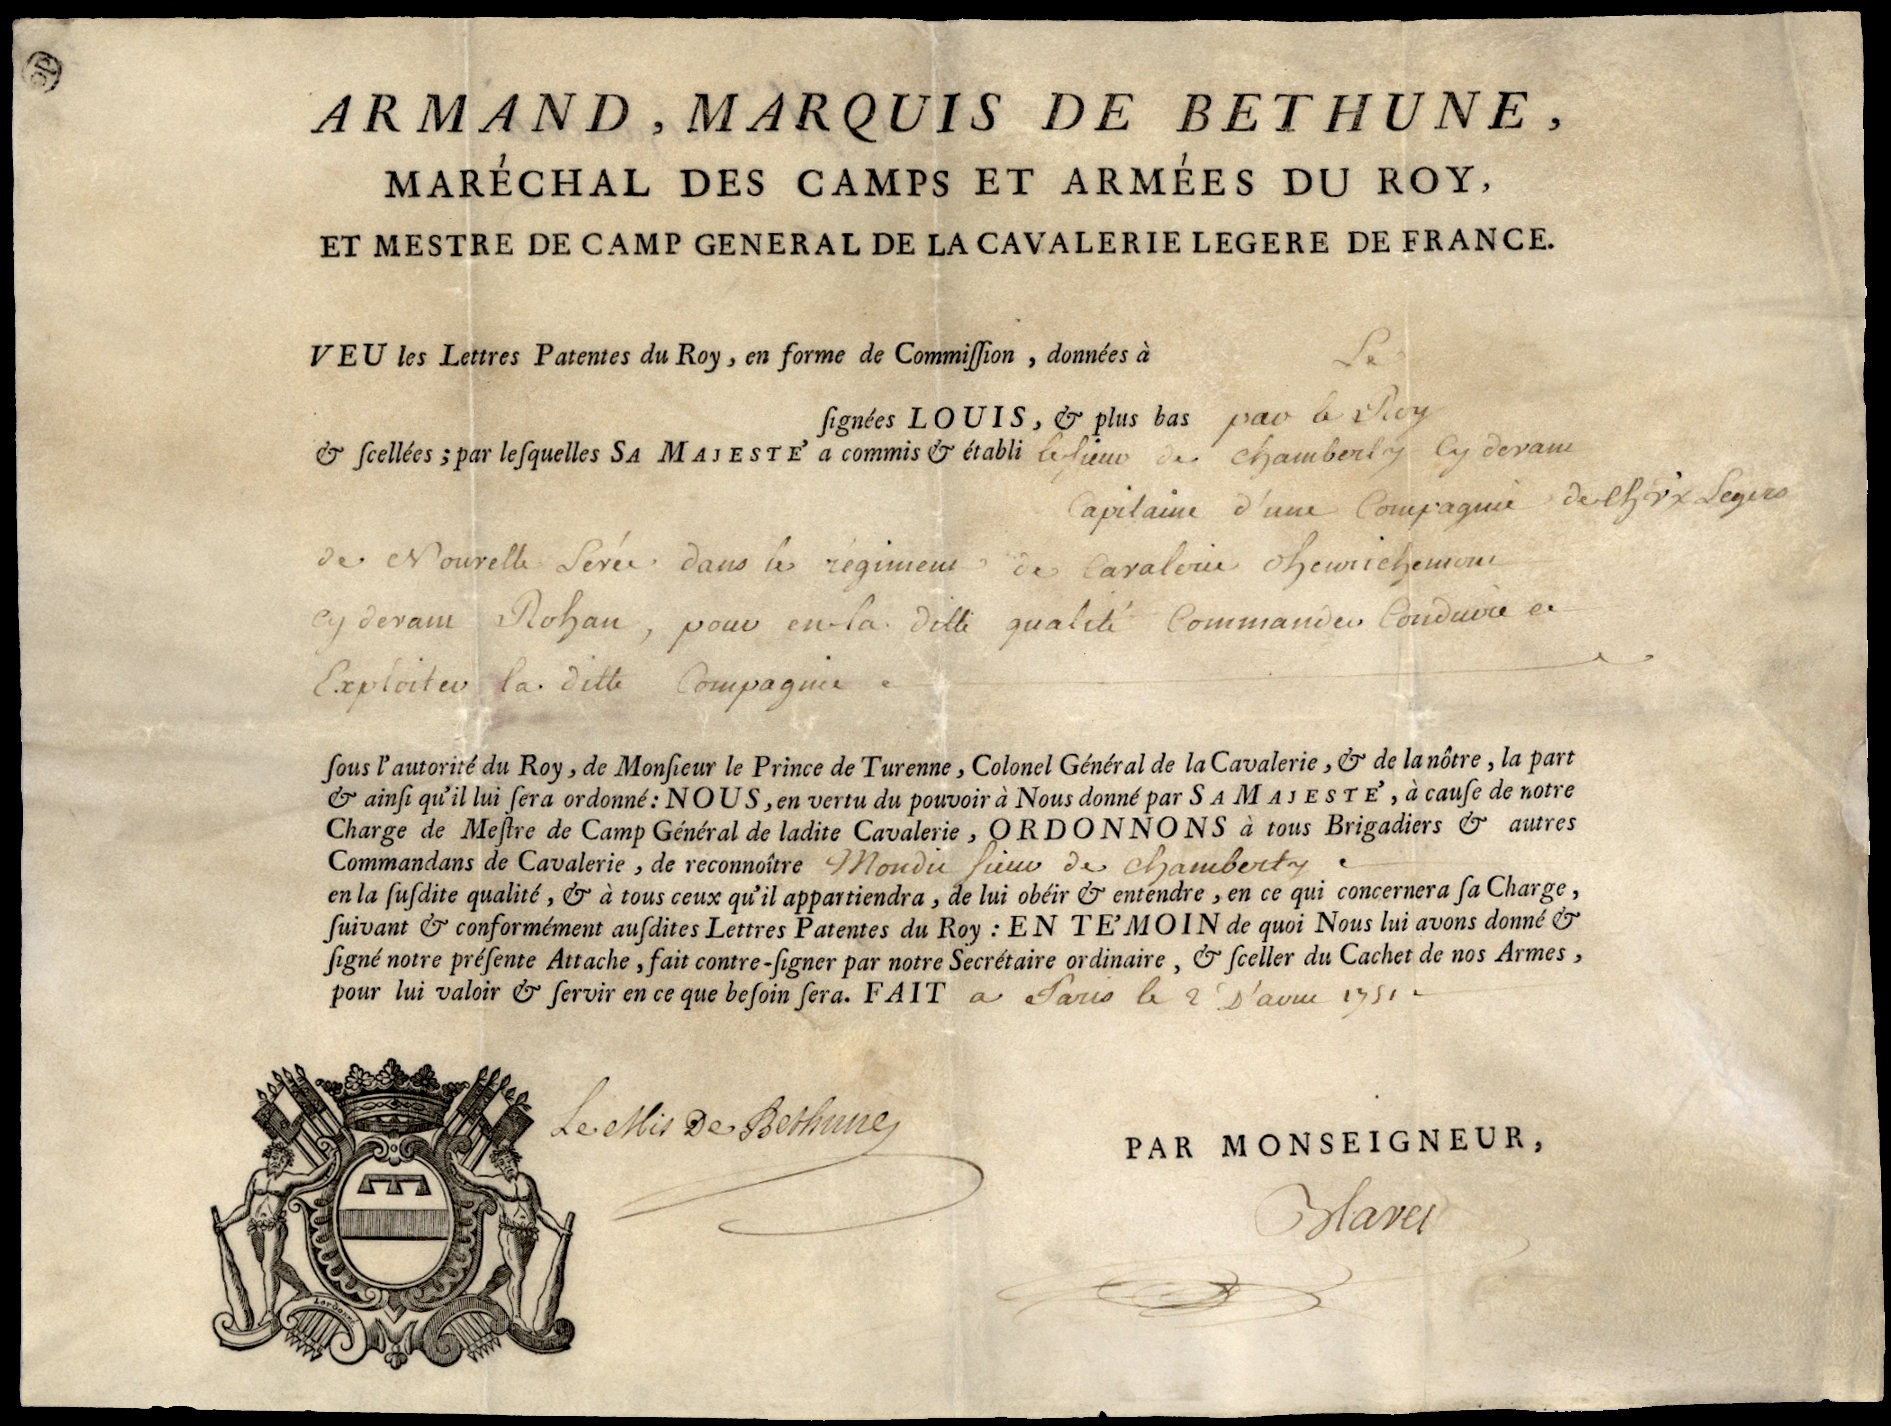 ARMAND, MARQUIS DE BETHUNE,
MARÉCHAL DES CAMPS ET ARMÉES DU ROY,
ET MESTRE DE CAMP GENERAL DE LA CAVALERIE LEGERE DE FRANCE.
VEU les Lettres Patentes du Roy, en forme de Commiſſion, données à Le
ſignées LOUIS, & plus bas par le Roy
& ſcellées; par leſquelles SA MAJESTE' a commis & établi le ſieur de Chamberty Cy devant
Capitaine d'une Compagnie de Ch.rx Legers
de Nouvelle Levée dans le régiment de Cavalerie d'henrichemont
Cy devant Rohan, pour en la ditte qualité Commander Conduire et
Exploiter la ditte Compagnie
ſous l'autorité du Roy, de Monſieur le Prince de Turenne, Colonel Général de la Cavalerie, & de la nôtre, la part
& ainſi qu'il lui ſera ordonné: NOUS, en vertu du pouvoir à Nous donné par SA MAJESTE', à cauſe de notre
Charge de Meſtre de Camp Général de ladite Cavalerie, ORDONNONS à tous Brigadiers & autres
Commandans de Cavalerie, de reconnoître Mondit ſieur de Chamberty
en la ſuſdite qualité, & à tous ceux qu'il appartiendra, de lui obéir & entendre, en ce qui concernera ſa Charge,
ſuivant & conformément auſdites Lettres Patentes du Roy: EN TE'MOIN de quoi Nous lui avons donné &
ſigné notre préſente Attache, fait contre-ſigner par notre Secrétaire ordinaire, & ſceller du Cachet de nos Armes,
pour lui valoir & ſervir en ce que beſoin ſera. FAIT a Paris le 2 D'avril 1751
Le Mis De Bethune
PAR MONSEIGNEUR,